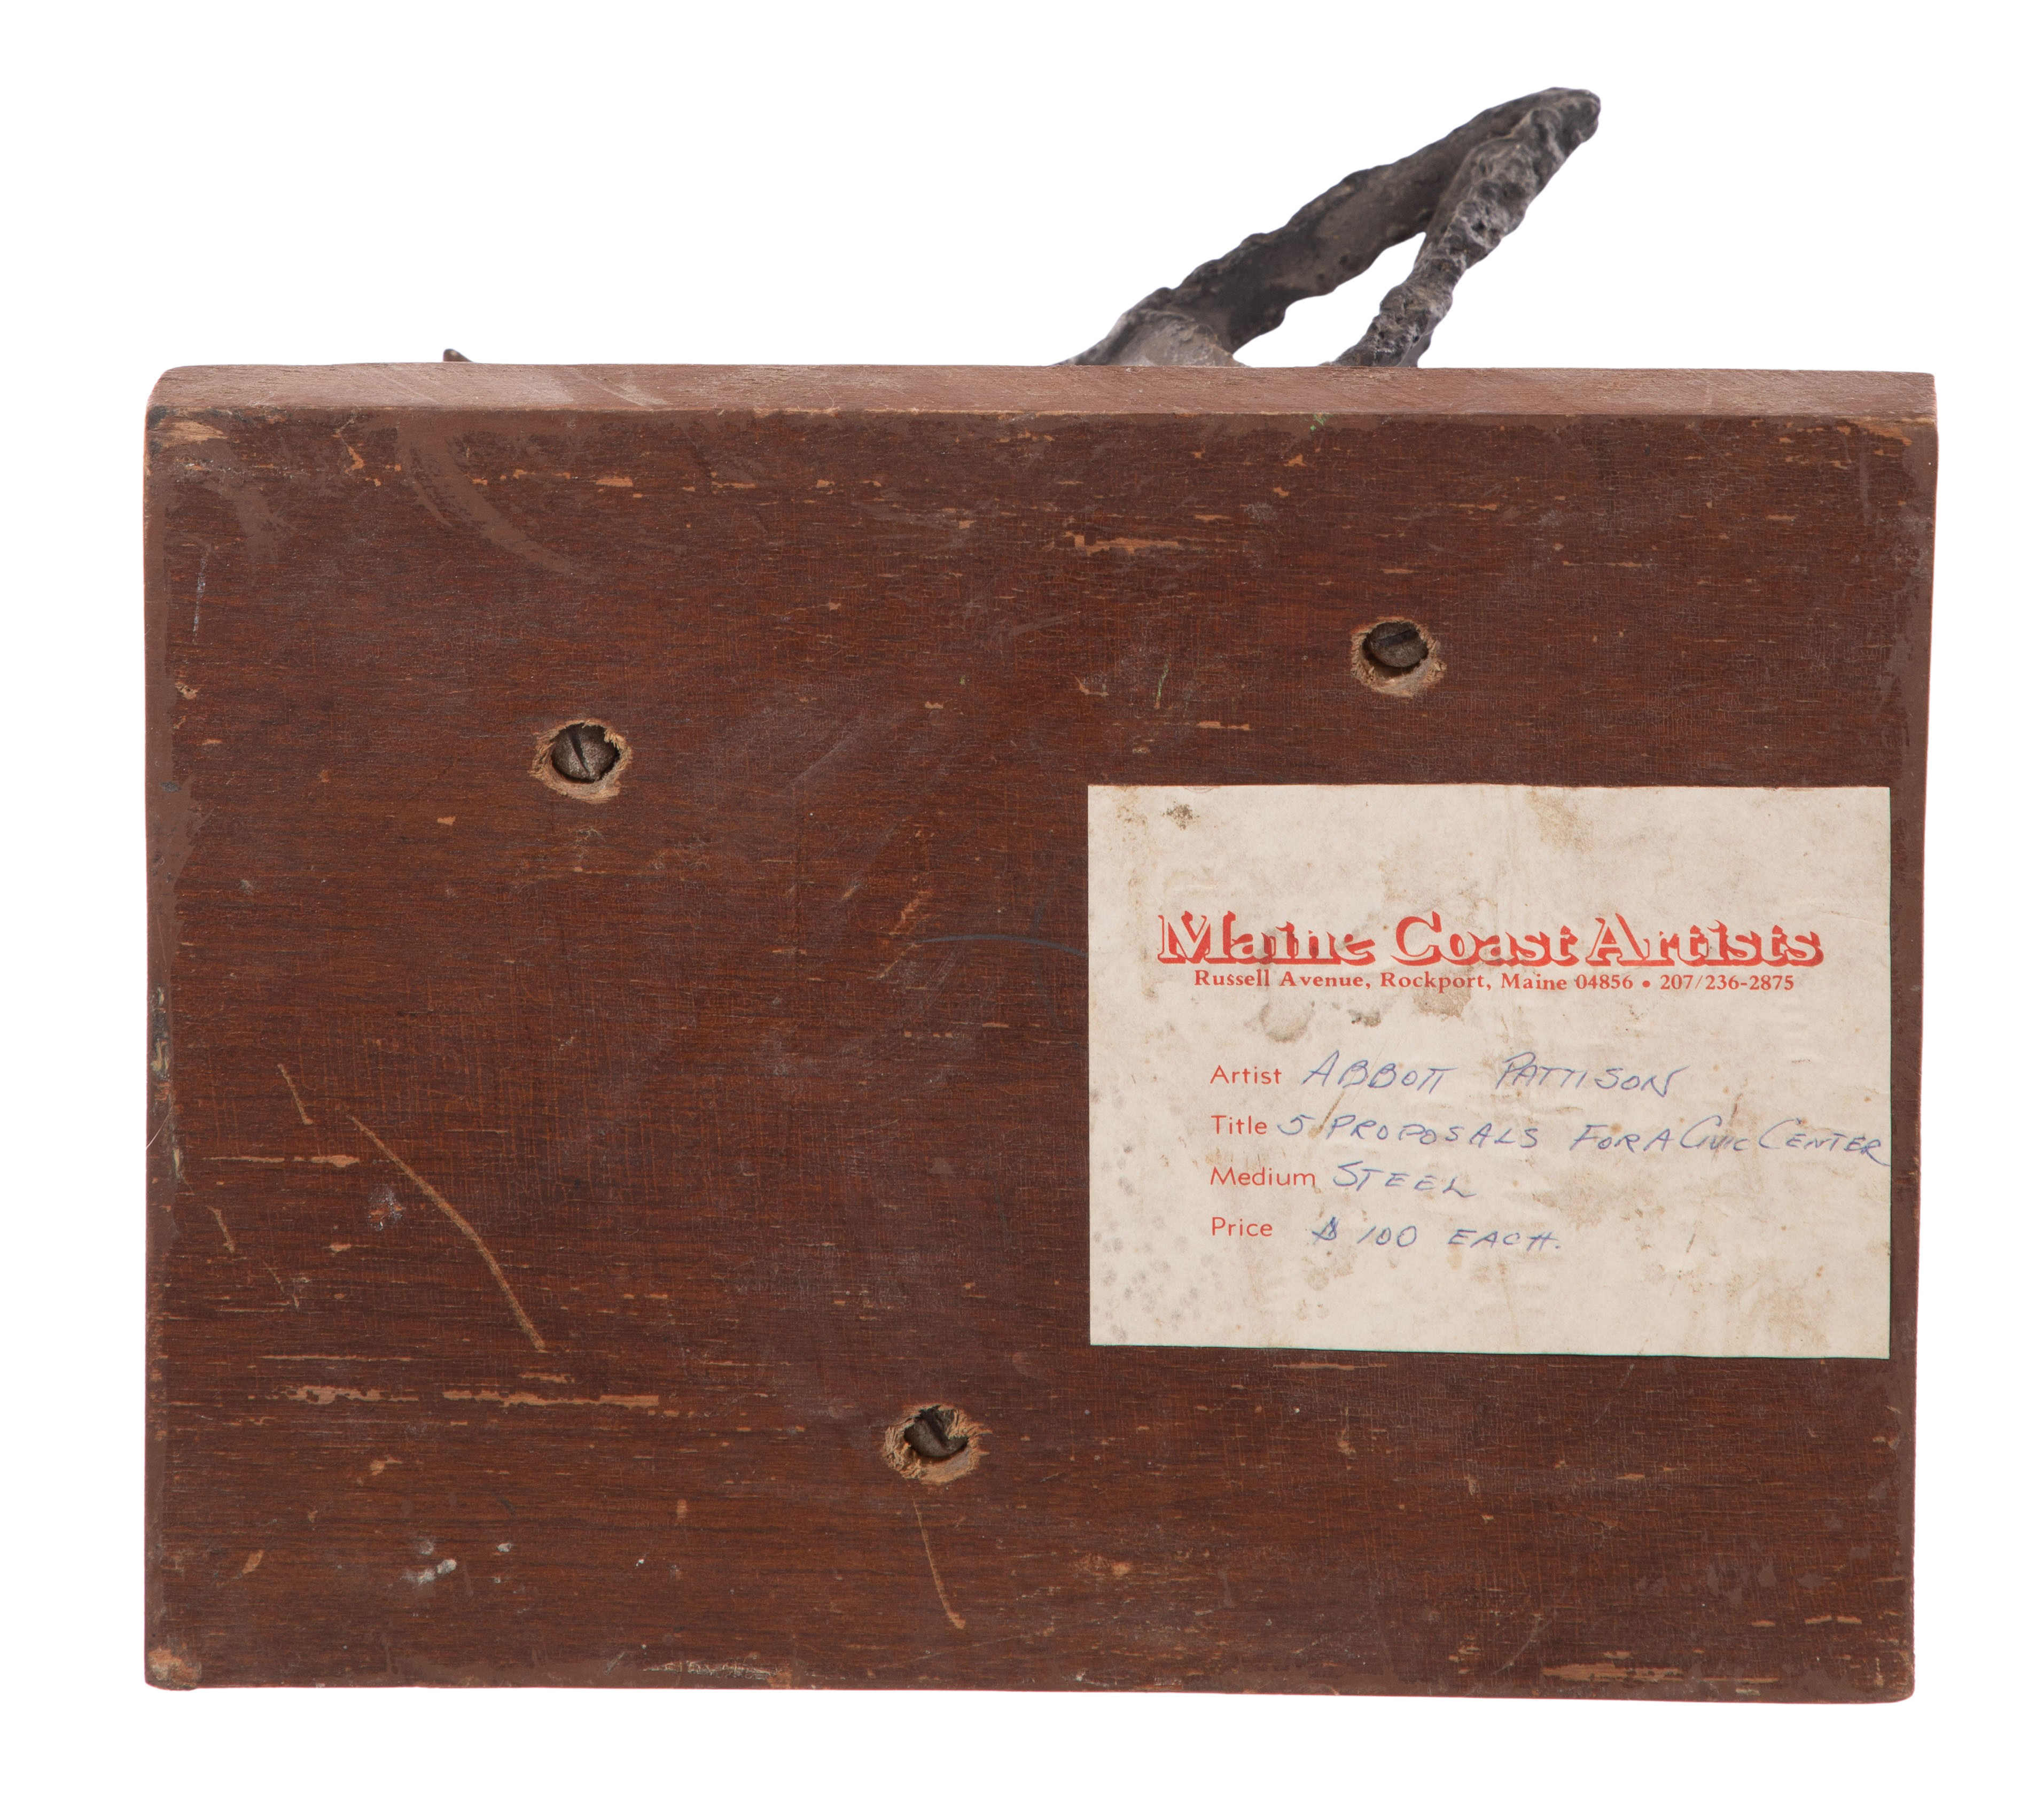 Maine Coast Artists
Russell Avenue, Rockport, Maine 04856 • 207/236-2875
Artist ABBOTT PATTISON
Title 5 PROPOSALS FOR A CIVIC CENTER
Medium STEEL
Price $100 EACH.